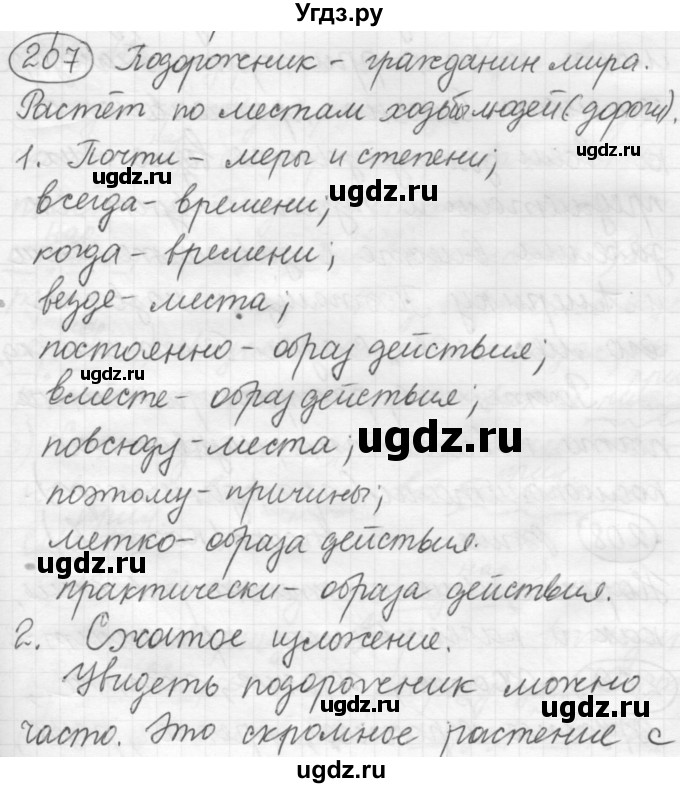 Угдз.ру
207 Подорожник - гражданин мира.
Растёт по местам ходьбы людей (дороги).
1. Почти - меры и степени;
ugdz.ru
ugdz.ru
ugdz.ru
всегда - времени;
когда - времени;
везде - места;
постоянно - образ действия;
ugdz.ru
вместе - образ действия;
повсюду - места;
ugdz.ru
поэтому - причины;
метко - образа действия.
ugdz.ru
практически - образа действия.
2. Сжатое изложение.
Увидеть подорожник можно
ugdz.ru
ugdz.ru
часто. Это скромное растение с
ugdz.ru